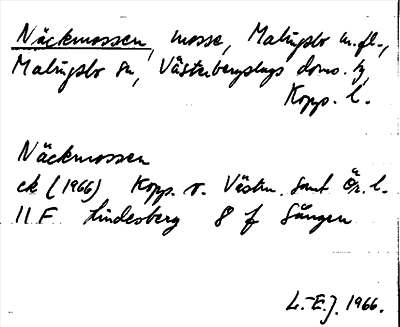 Näckmossen, mosse, Malingsbo m.fl.,
Malingsbo sn, Västerbergslags doms. tg,
Kopp. l.
Näckmossen
ek (1966) Kopp. o. Västm. samt Ör. l.
11 F Lindesberg 8 f Sången
L.-E.J. 1966.